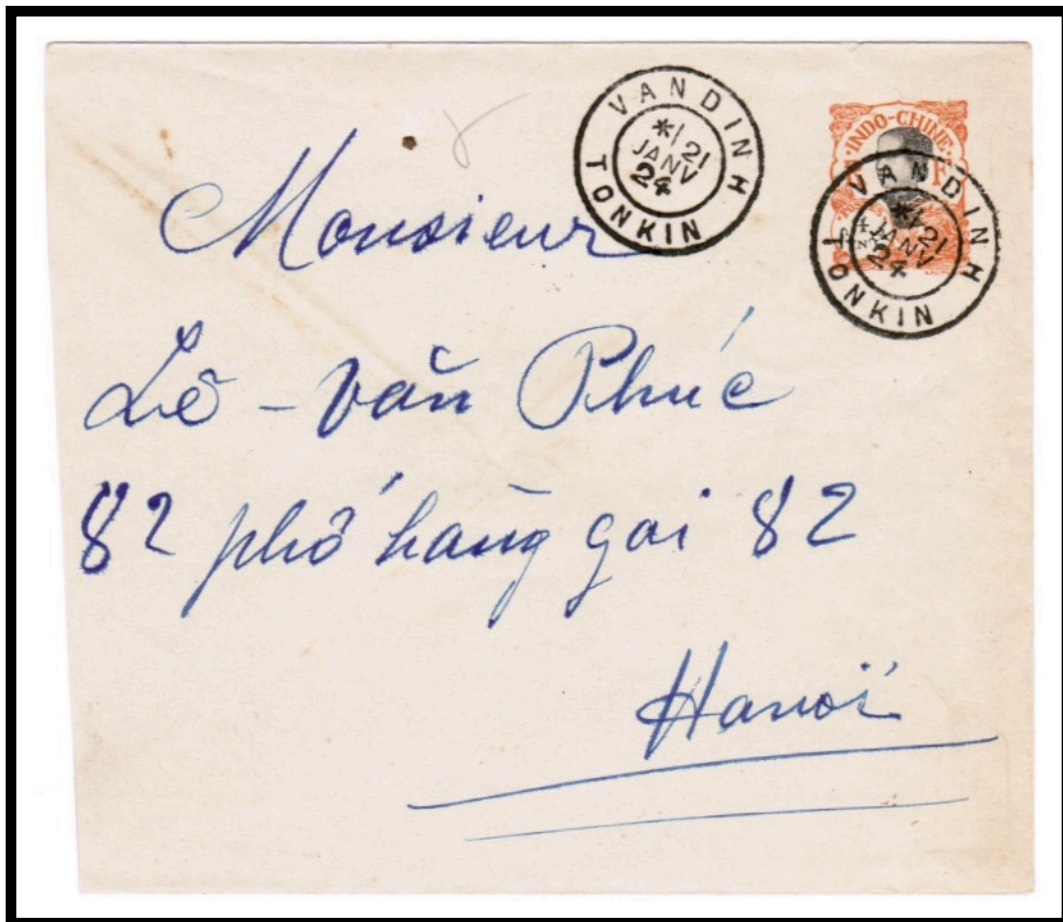 VANDINH
*/21
JANV
24
TONKIN
INDO-CHINE
F
VANDINH
*/21
JANV
24
TONKIN
Monsieur
Lê - văn Phúc
82 phố hàng gai 82
Hanoï